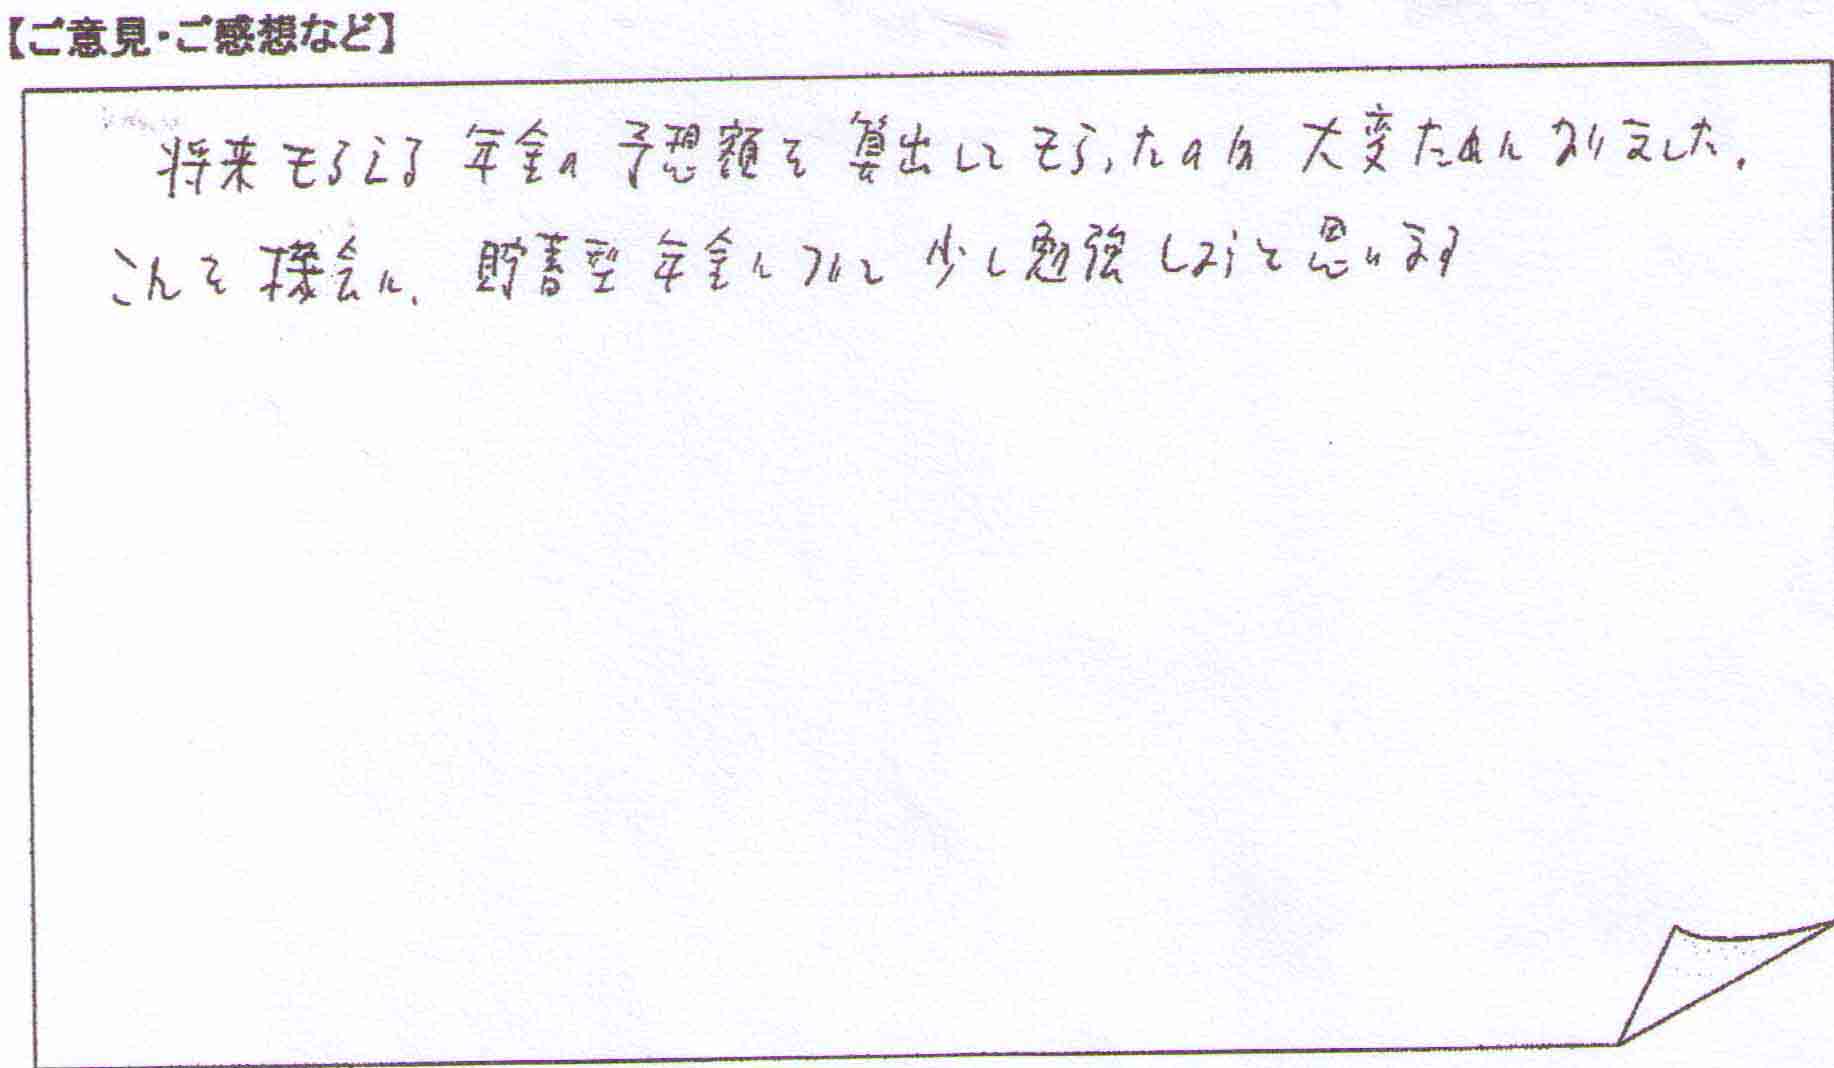 【ご意見・ご感想など】
将来もらえる年金の予想額を算出してもらったのは大変ためになりました。
これを機会に、貯蓄型年金について少し勉強しようと思います